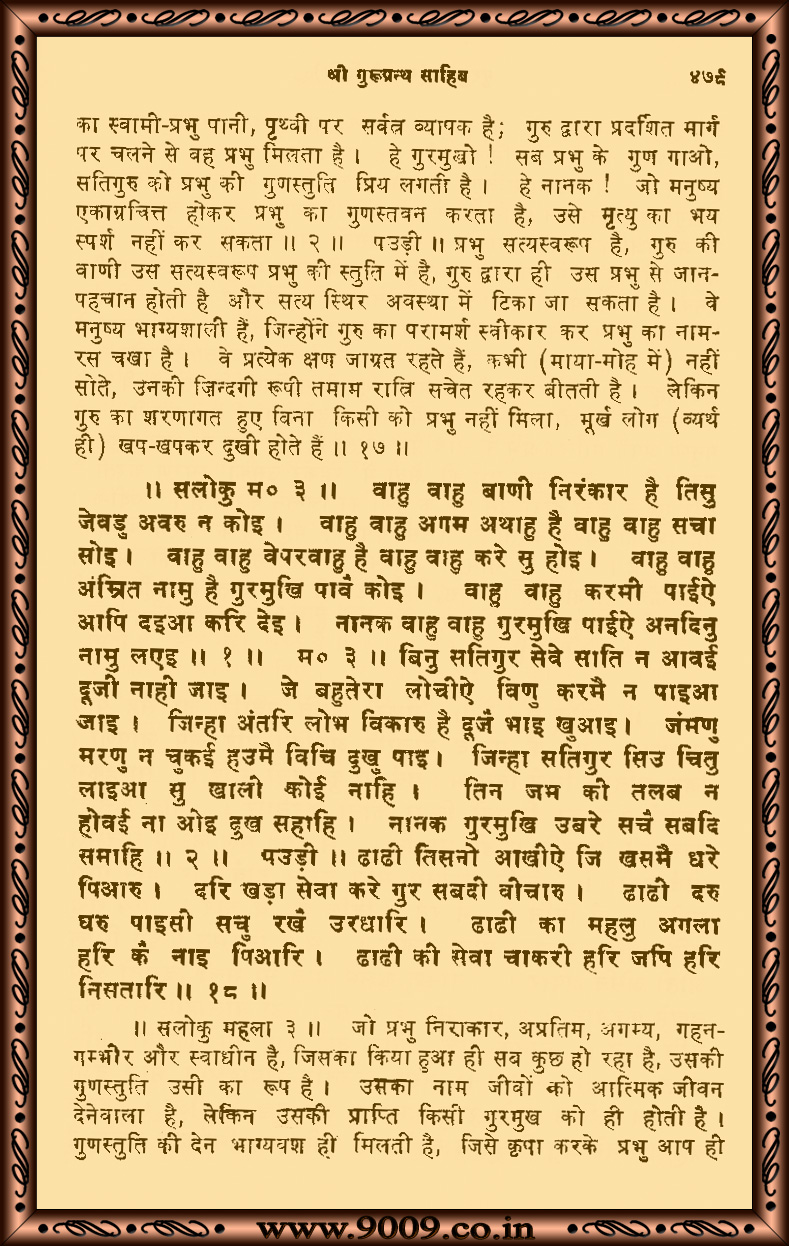 श्री गुरूग्रन्थ साहिब ४७९
का स्वामी-प्रभु पानी, पृथ्वी पर सर्वत्र व्यापक है; गुरु द्वारा प्रदर्शित मार्ग
पर चलने से वह प्रभु मिलता है। हे गुरमुखो ! सब प्रभु के गुण गाओ,
सतिगुरु को प्रभु की गुणस्तुति प्रिय लगती है। हे नानक ! जो मनुष्य
एकाग्रचित्त होकर प्रभु का गुणस्तवन करता है, उसे मृत्यु का भय
स्पर्श नहीं कर सकता ॥ २ ॥ पउड़ी ॥ प्रभु सत्यस्वरूप है, गुरु की
वाणी उस सत्यस्वरूप प्रभु की स्तुति में है, गुरु द्वारा ही उस प्रभु से जान-
पहचान होती है और सत्य स्थिर अवस्था में टिका जा सकता है। वे
मनुष्य भाग्यशाली हैं, जिन्होंने गुरु का परामर्श स्वीकार कर प्रभु का नाम-
रस चखा है। वे प्रत्येक क्षण जाग्रत रहते हैं, कभी (माया-मोह में) नहीं
सोते, उनकी ज़िन्दगी रूपी तमाम रात्रि सचेत रहकर बीतती है। लेकिन
गुरु का शरणागत हुए विना किसी को प्रभु नहीं मिला, मूर्ख लोग (व्यर्थ
ही) खप-खपकर दुखी होते हैं ॥ १७ ॥
॥ सलोकु म० ३ ॥ वाहु वाहु बाणी निरंकार है तिसु
जेवडु अवरु न कोइ। वाहु वाहु अगम अथाहु है वाहु वाहु सचा
सोइ। वाहु वाहु वेपरवाहु है वाहु वाहु करे सु होइ। वाहु वाहु
अंम्रित नामु है गुरमुखि पावै कोइ। वाहु वाहु करमी पाईऐ
आपि दइआ करि देइ। नानक वाहु वाहु गुरमुखि पाईऐ अनदिनु
नामु लएइ ॥ १ ॥ म० ३ ॥ बिनु सतिगुर सेवे साति न आवई
दूजी नाही जाइ। जे बहुतेरा लोचीऐ विणु करमै न पाइआ
जाइ। जिन्हा अंतरि लोभ विकारु है दूजै भाइ खुआइ। जंमणु
मरणु न चुकई हउमै विचि दुखु पाइ। जिन्हा सतिगुर सिउ चितु
लाइआ सु खाली कोई नाहि। तिन जम की तलब न
होवई ना ओइ दुख सहाहि। नानक गुरमुखि उबरे सचै सबदि
समाहि ॥ २ ॥ पउड़ी ॥ ढाढी तिसनो आखीऐ जि खसमै धरे
पिआरु। दरि खड़ा सेवा करे गुर सबदी वीचारु। ढाढी दरु
घरु पाइसी सचु रखै उरधारि। ढाढी का महलु अगला
हरि कै नाइ पिआरि। ढाढी की सेवा चाकरी हरि जपि हरि
निसतारि ॥ १८ ॥
॥ सलोकु महला ३ ॥ जो प्रभु निराकार, अप्रतिम, अगम्य, गहन-
गम्भीर और स्वाधीन है, जिसका किया हुआ ही सब कुछ हो रहा है, उसकी
गुणस्तुति उसी का रूप है। उसका नाम जीवों को आत्मिक जीवन
देनेवाला है, लेकिन उसकी प्राप्ति किसी गुरमुख को ही होती है।
गुणस्तुति की देन भाग्यवश ही मिलती है, जिसे कृपा करके प्रभु आप ही
www.9009.co.in